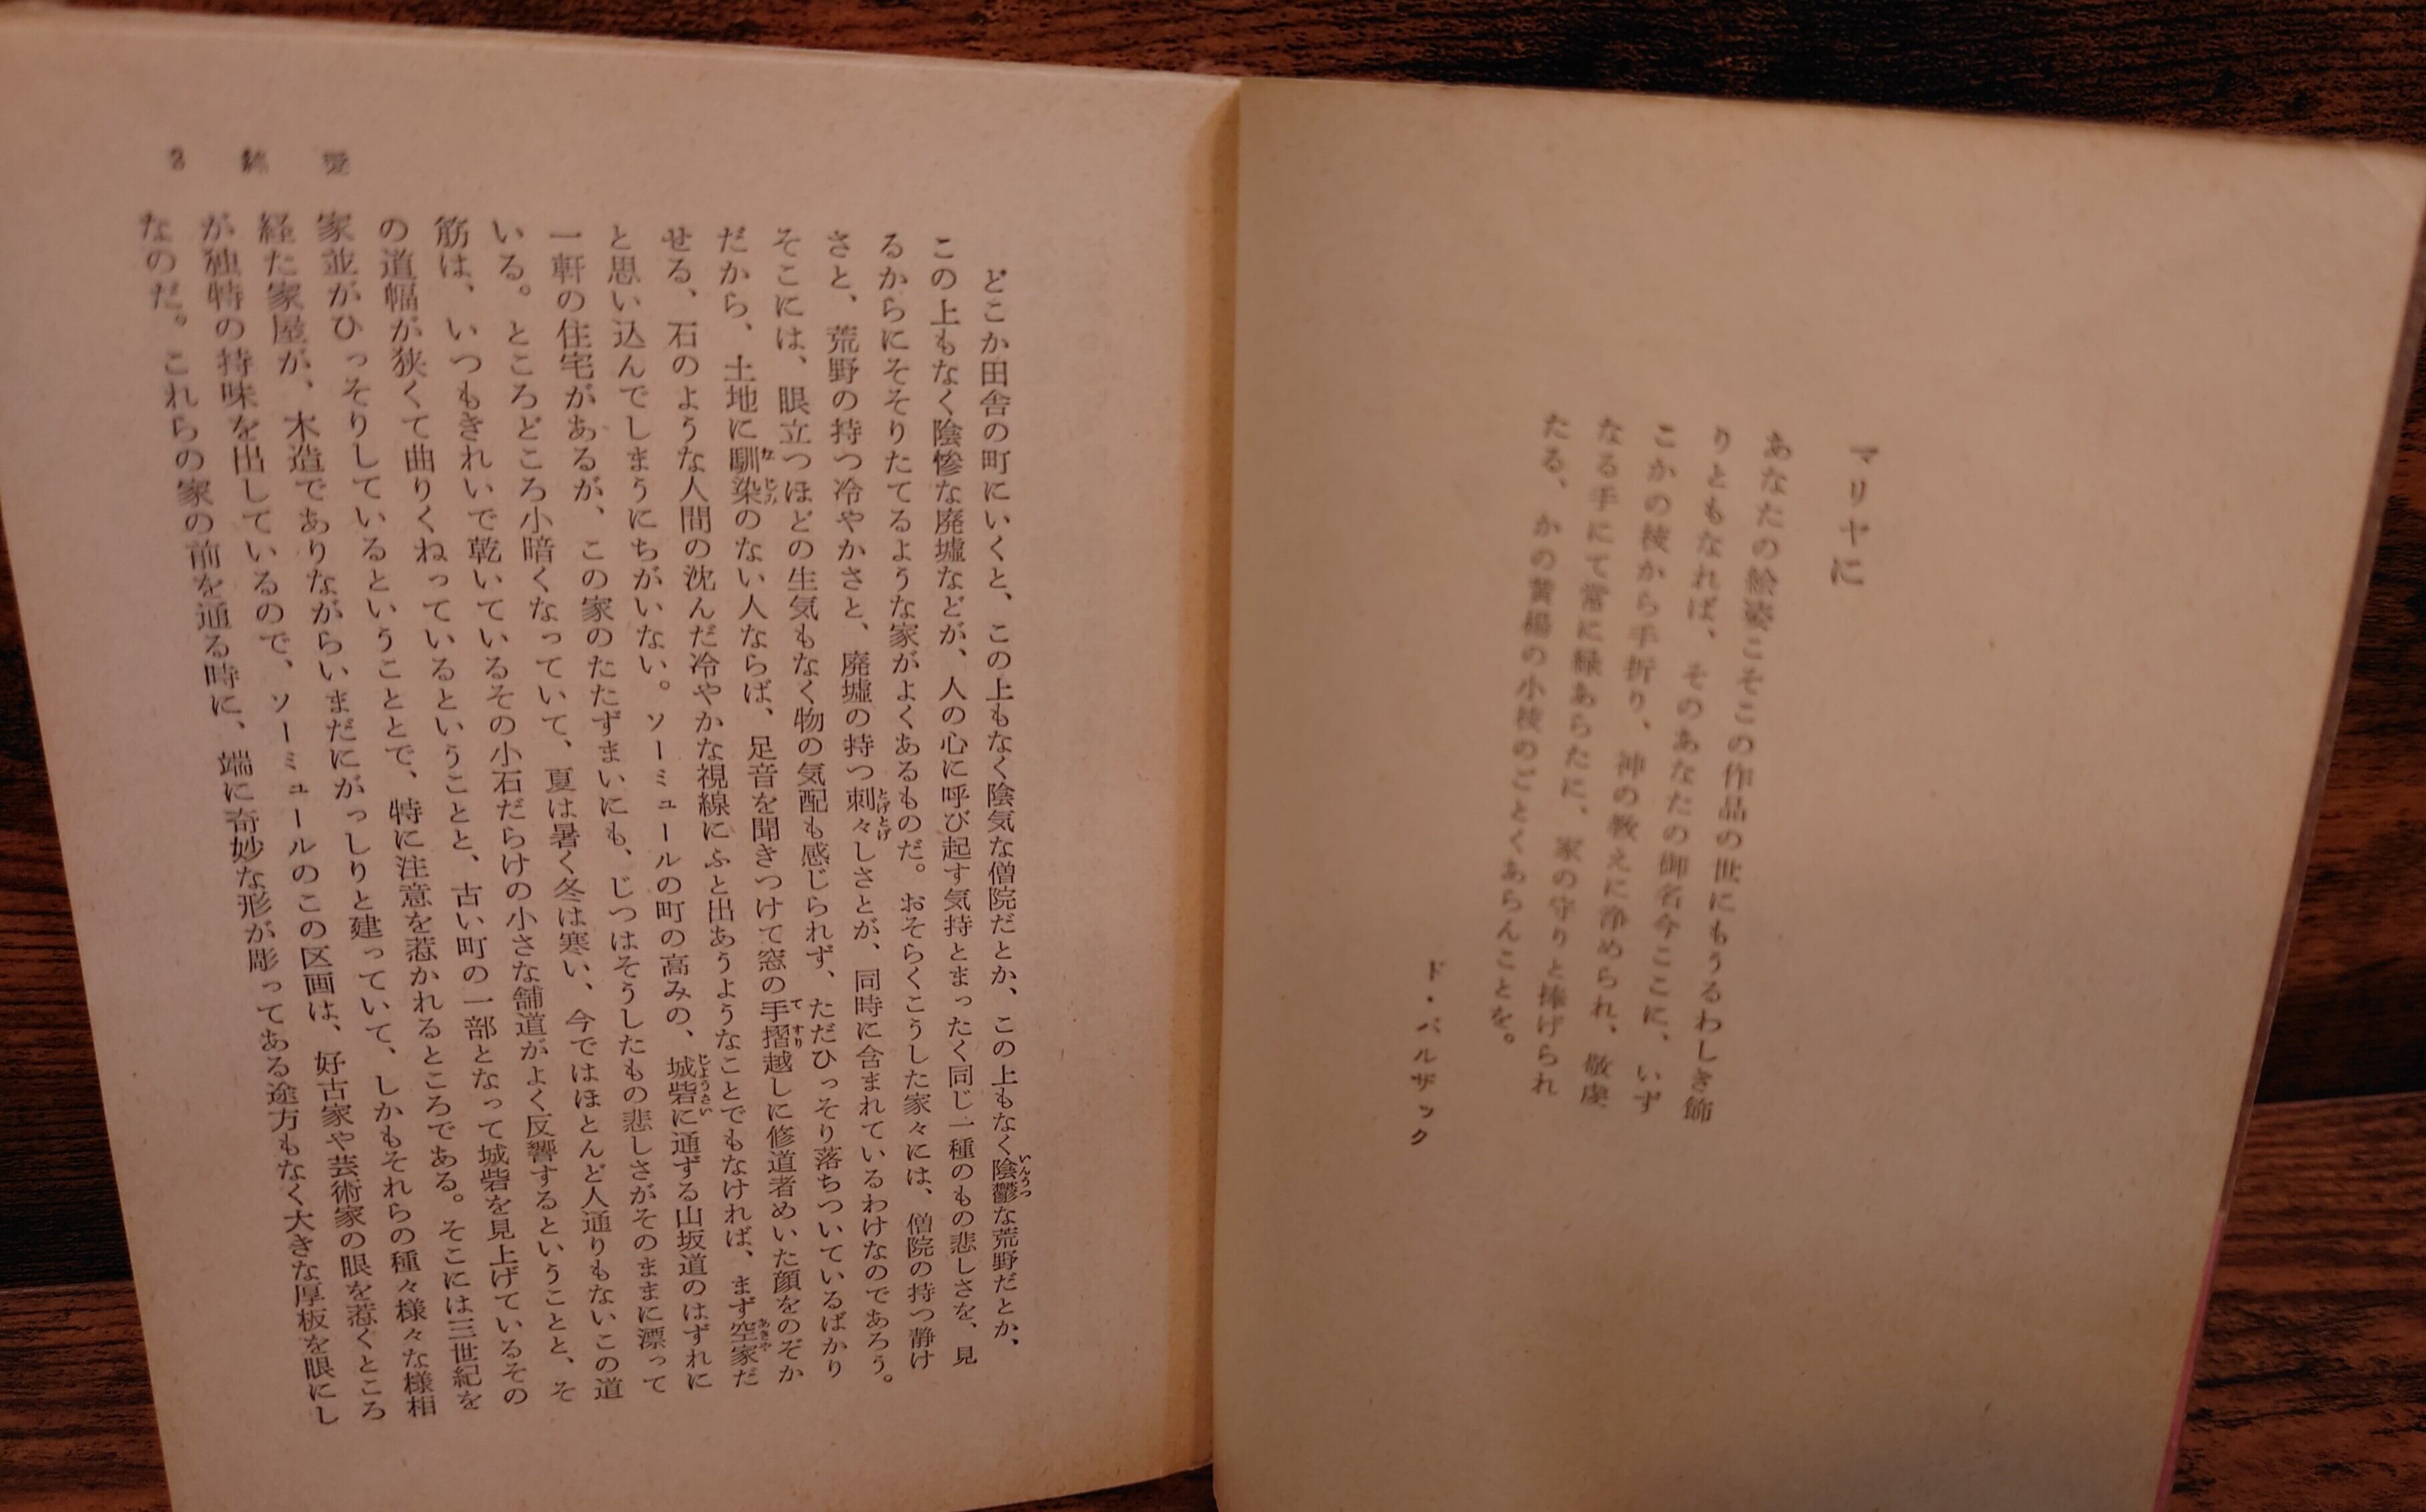 マリヤに
あなたの絵姿こそこの作品の世にもうるわしき飾
りともなれば、そのあなたの御名今ここに、いず
こかの枝から手折り、神の教えに浄められ、敬虔
なる手にて常に緑あらたに、家の守りと捧げられ
たる、かの黄楊の小枝のごとくあらんことを。
ド・バルザック
どこか田舎の町にいくと、この上もなく陰気な僧院だとか、この上もなく陰鬱な荒野だとか、
この上もなく陰惨な廃墟などが、人の心に呼び起す気持とまったく同じ一種のもの悲しさを、見
るからにそそりたてるような家がよくあるものだ。おそらくこうした家々には、僧院の持つ静け
さと、荒野の持つ冷やかさと、廃墟の持つ刺々しさとが、同時に含まれているわけなのであろう。
そこには、眼立つほどの生気もなく物の気配も感じられず、ただひっそり落ちついているばかり
だから、土地に馴染のない人ならば、足音を聞きつけて窓の手摺越しに修道者めいた顔をのぞか
せる、石のような人間の沈んだ冷やかな視線にふと出あうようなことでもなければ、まず空家だ
と思い込んでしまうにちがいない。ソーミュールの町の高みの、城砦に通ずる山坂道のはずれに
一軒の住宅があるが、この家のたたずまいにも、じつはそうしたもの悲しさがそのままに漂って
いる。ところどころ小暗くなっていて、夏は暑く冬は寒い、今ではほとんど人通りもないこの道
筋は、いつもきれいで乾いているその小石だらけの小さな舗道がよく反響するということと、そ
の道幅が狭くて曲りくねっているということと、古い町の一部となって城砦を見上げているその
家並がひっそりしているということとで、特に注意を惹かれるところである。そこには三世紀を
経た家屋が、木造でありながらいまだにがっしりと建っていて、しかもそれらの種々様々な様相
が独特の持味を出しているので、ソーミュールのこの区画は、好古家や芸術家の眼を惹くところ
なのだ。これらの家の前を通る時に、端に奇妙な形が彫ってある途方もなく大きな厚板を眼にし
3